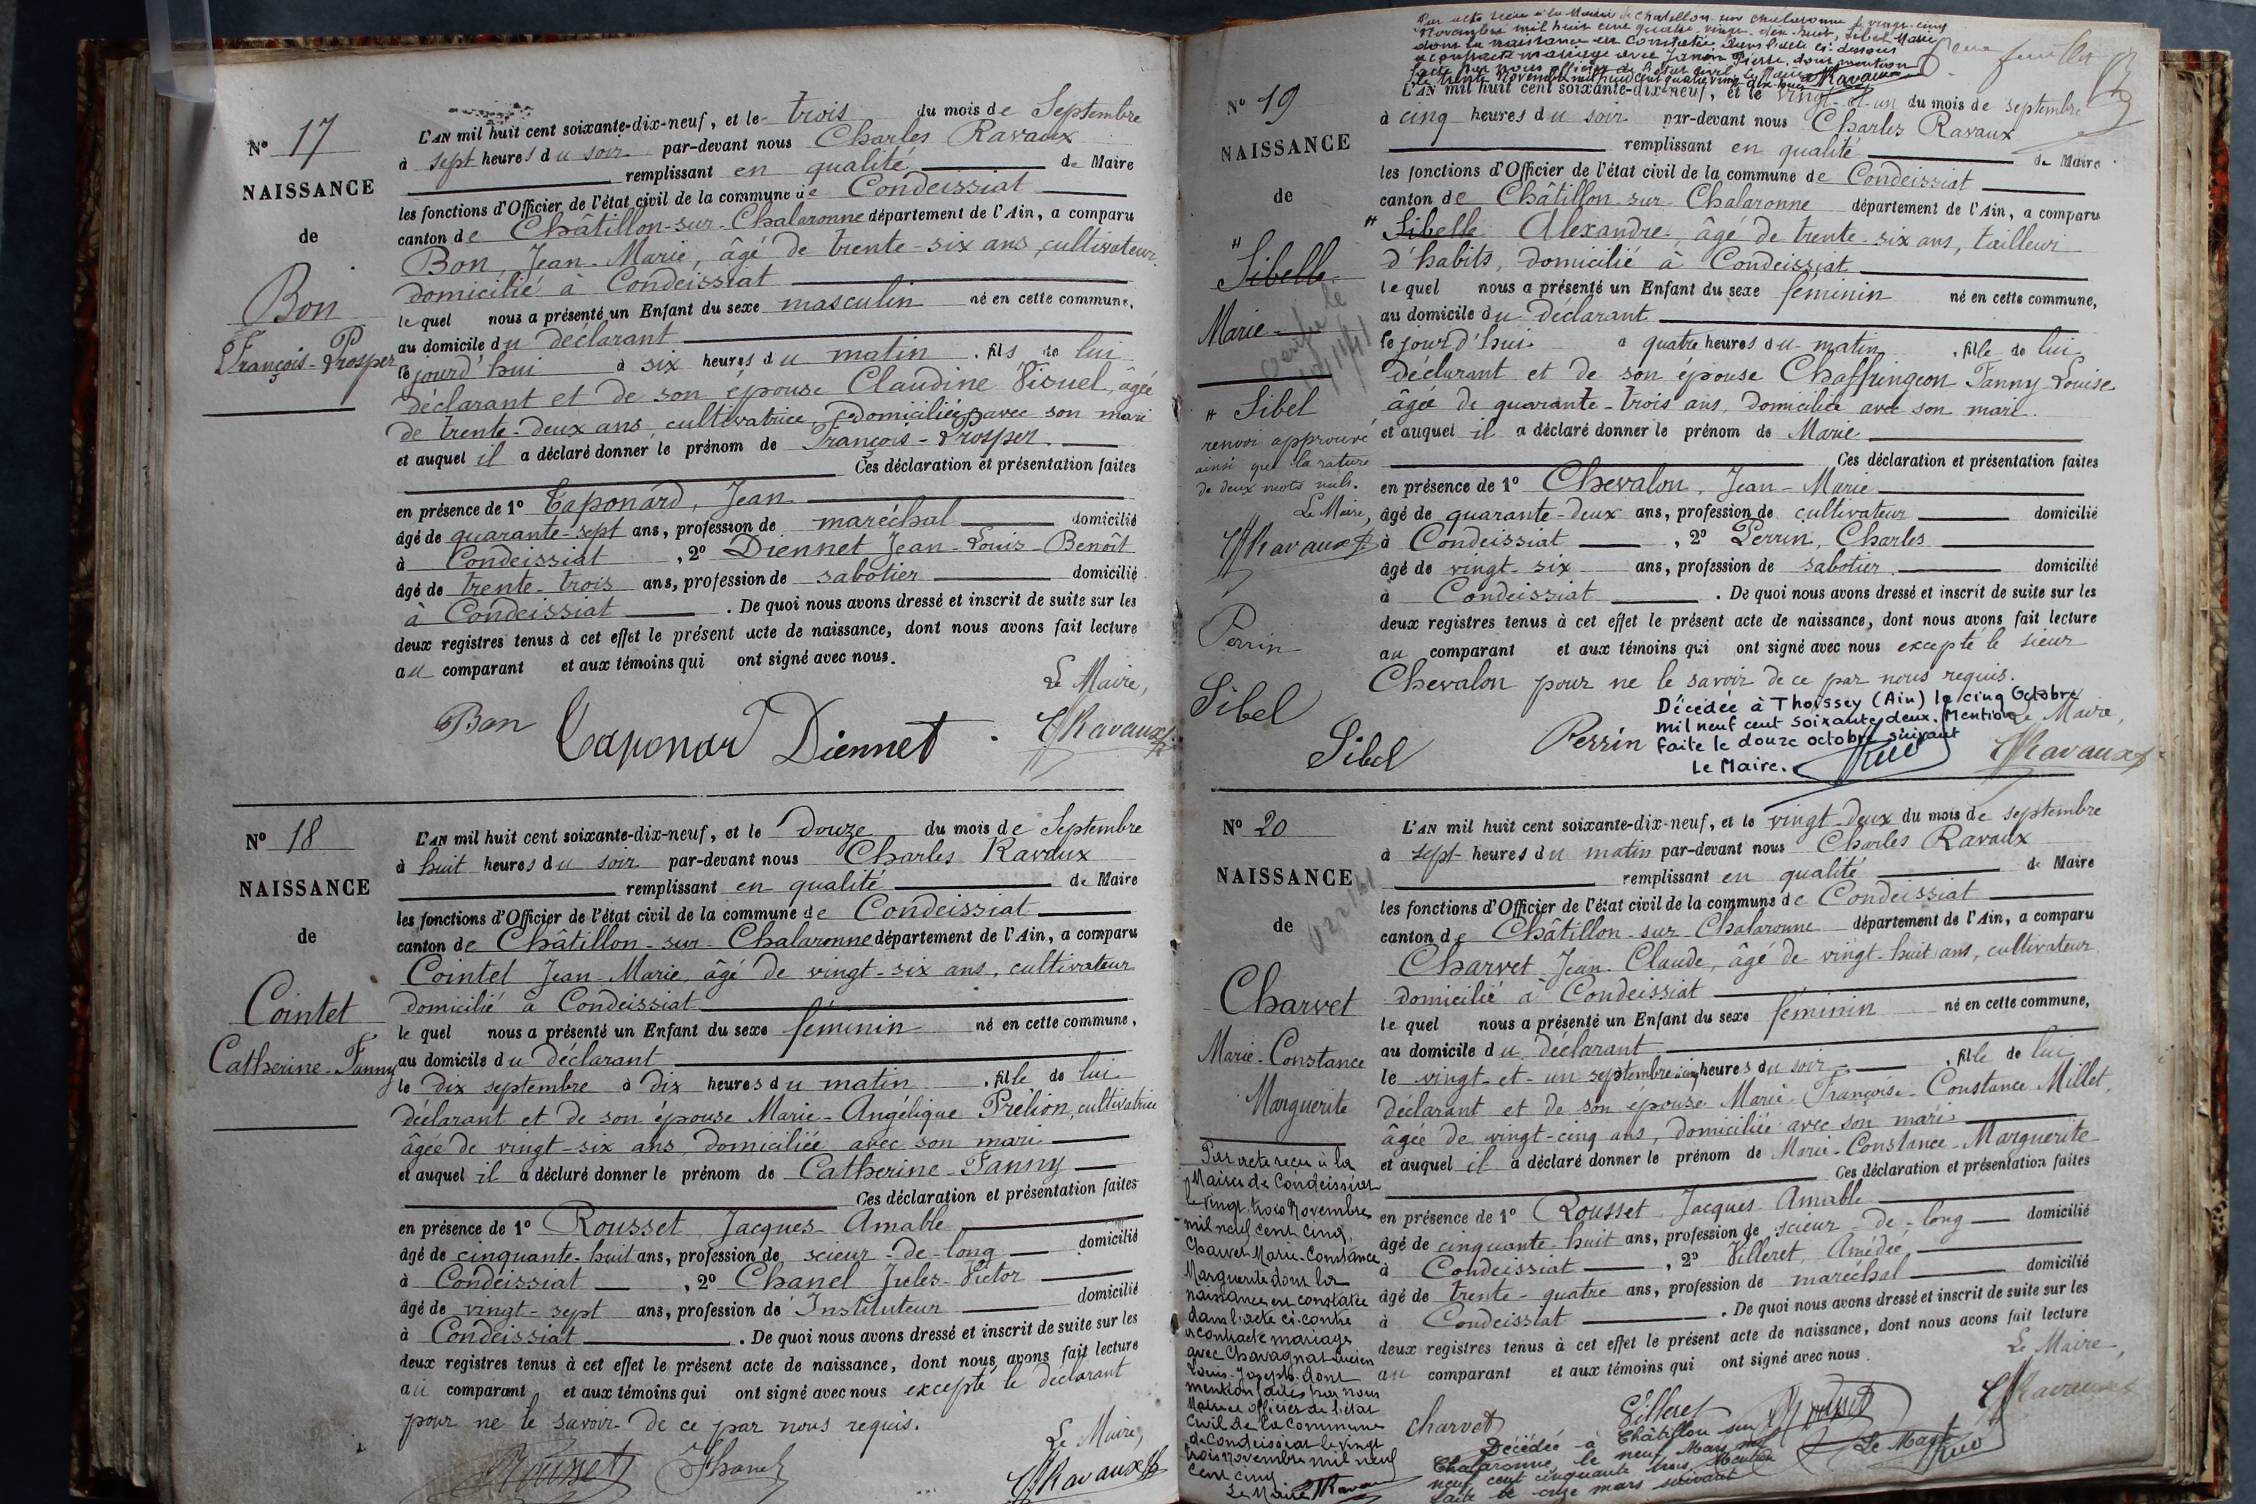 N° 17
NAISSANCE
de
Bon
François-Prosper
L'AN mil huit cent soixante-dix-neuf, et le trois du mois de Septembre
à sept heures du soir par-devant nous Charles Ravaux
remplissant en qualité de Maire
les fonctions d'Officier de l'état civil de la commune de Condeissiat
canton de Châtillon-sur-Chalaronne département de l'Ain, a comparu
Bon, Jean-Marie, âgé de trente-six ans, cultivateur
domicilié à Condeissiat
lequel nous a présenté un Enfant du sexe masculin né en cette commune,
au domicile du déclarant
le jourd'hui à six heures du matin, fils de lui
déclarant et de son épouse Claudine Visuel, âgée
de trente-deux ans, cultivatrice, domiciliée avec son mari
et auquel il a déclaré donner le prénom de François-Prosper.
Ces déclaration et présentation faites
en présence de 1° Taponard, Jean
âgé de quarante-sept ans, profession de maréchal domicilié
à Condeissiat, 2° Diennet Jean-Louis-Benoît
âgé de trente-trois ans, profession de sabotier domicilié
à Condeissiat. De quoi nous avons dressé et inscrit de suite sur les
deux registres tenus à cet effet le présent acte de naissance, dont nous avons fait lecture
au comparant et aux témoins qui ont signé avec nous.
Le Maire,
Bon Taponar Diennet Ravaux
N° 18
NAISSANCE
de
Cointet
Catherine-Fanny
L'AN mil huit cent soixante-dix-neuf, et le douze du mois de Septembre
à huit heures du soir par-devant nous Charles Ravaux
remplissant en qualité de Maire
les fonctions d'Officier de l'état civil de la commune de Condeissiat
canton de Châtillon-sur-Chalaronne département de l'Ain, a comparu
Cointet Jean-Marie, âgé de vingt-six ans, cultivateur
domicilié à Condeissiat
lequel nous a présenté un Enfant du sexe féminin né en cette commune,
au domicile du déclarant
le dix septembre à dix heures du matin, fille de lui
déclarant et de son épouse Marie-Angélique Prélion, cultivatrice
âgée de vingt-six ans, domiciliée avec son mari
et auquel il a déclaré donner le prénom de Catherine-Fanny
Ces déclaration et présentation faites
en présence de 1° Rousset Jacques-Amable
âgé de cinquante-huit ans, profession de scieur-de-long domicilié
à Condeissiat, 2° Chanel Jules-Victor
âgé de vingt-sept ans, profession de Instituteur domicilié
à Condeissiat. De quoi nous avons dressé et inscrit de suite sur les
deux registres tenus à cet effet le présent acte de naissance, dont nous avons fait lecture
au comparant et aux témoins qui ont signé avec nous excepté le déclarant
pour ne le savoir de ce par nous requis.
Le Maire,
Rousset JChanel Ravaux
Par acte reçu à la Mairie de Chatillon sur Chalaronne le vingt-cinq
Novembre mil huit cent quatre-vingt-dix-huit, Sibel Marie
dont la naissance est constatée dans l'acte ci-dessous
a contracté mariage avec Janin Pierre, dont mention
faite par nous officier de l'état civil
le trente Novembre mil huit cent quatre vingt dix huit Ravaux
feuillet
N° 19
NAISSANCE
de
" Sibelle
Marie
" Sibel
renvoi approuvé
ainsi que la rature
de deux mots nuls.
Le Maire,
Ravaux
Perrin
Sibel
L'AN mil huit cent soixante-dix-neuf, et le vingt-et-un du mois de septembre
à cinq heures du soir par-devant nous Charles Ravaux
remplissant en qualité de Maire
les fonctions d'Officier de l'état civil de la commune de Condeissiat
canton de Châtillon-sur-Chalaronne département de l'Ain, a comparu
" Sibelle Alexandre, âgé de trente-six ans, tailleur
d'habits, domicilié à Condeissiat
lequel nous a présenté un Enfant du sexe féminin né en cette commune,
au domicile du déclarant
le jourd'hui à quatre heures du matin, fille de lui
déclarant et de son épouse Chaffringeon Fanny Louise
âgée de quarante-trois ans, domiciliée avec son mari.
et auquel il a déclaré donner le prénom de Marie
Ces déclaration et présentation faites
en présence de 1° Chevalon, Jean-Marie
âgé de quarante-deux ans, profession de cultivateur domicilié
à Condeissiat, 2° Perrin, Charles
âgé de vingt-six ans, profession de sabotier domicilié
à Condeissiat. De quoi nous avons dressé et inscrit de suite sur les
deux registres tenus à cet effet le présent acte de naissance, dont nous avons fait lecture
au comparant et aux témoins qui ont signé avec nous excepté le sieur
Chevalon pour ne le savoir de ce par nous requis.
Décédée à Thoissey (Ain) le cinq Octobre
mil neuf cent soixante deux. Mention
faite le douze octobre suivant
Le Maire.
Le Maire,
Sibel Perrin Ravaux
N° 20
NAISSANCE
de
Charvet
Marie-Constance
Marguerite
Par acte reçu à la
Mairie de Condeissiat
le vingt-trois Novembre
mil neuf cent cinq,
Charvet Marie-Constance
Marguerite dont la
naissance est constatée
dans l'acte ci-contre
a contracté mariage
avec Chavagnat Lucien
Louis-Joseph dont
mention faite par nous
Maire et officier de l'état
Civil de la Commune
de Condeissiat le vingt
trois novembre mil neuf
cent cinq.
Le Maire Ravaux
L'AN mil huit cent soixante-dix-neuf, et le vingt-deux du mois de septembre
à sept heures du matin par-devant nous Charles Ravaux
remplissant en qualité de Maire
les fonctions d'Officier de l'état civil de la commune de Condeissiat
canton de Châtillon-sur-Chalaronne département de l'Ain, a comparu
Charvet Jean-Claude, âgé de vingt-huit ans, cultivateur
domicilié à Condeissiat
lequel nous a présenté un Enfant du sexe féminin né en cette commune,
au domicile du déclarant
le vingt-et-un septembre à cinq heures du soir, fille de lui
déclarant et de son épouse Marie-Françoise-Constance Millet,
âgée de vingt-cinq ans, domiciliée avec son mari
et auquel il a déclaré donner le prénom de Marie-Constance-Marguerite
Ces déclaration et présentation faites
en présence de 1° Rousset Jacques Amable
âgé de cinquante-huit ans, profession de scieur-de-long domicilié
à Condeissiat, 2° Villeret, Amédée
âgé de trente-quatre ans, profession de maréchal domicilié
à Condeissiat. De quoi nous avons dressé et inscrit de suite sur les
deux registres tenus à cet effet le présent acte de naissance, dont nous avons fait lecture
au comparant et aux témoins qui ont signé avec nous.
Le Maire,
Charvet Villeret Rousset Ravaux
Décédée à Châtillon sur
Chalaronne, le neuf Mars mil
neuf cent cinquante trois Mention
faite le onze mars suivant
Le Maire